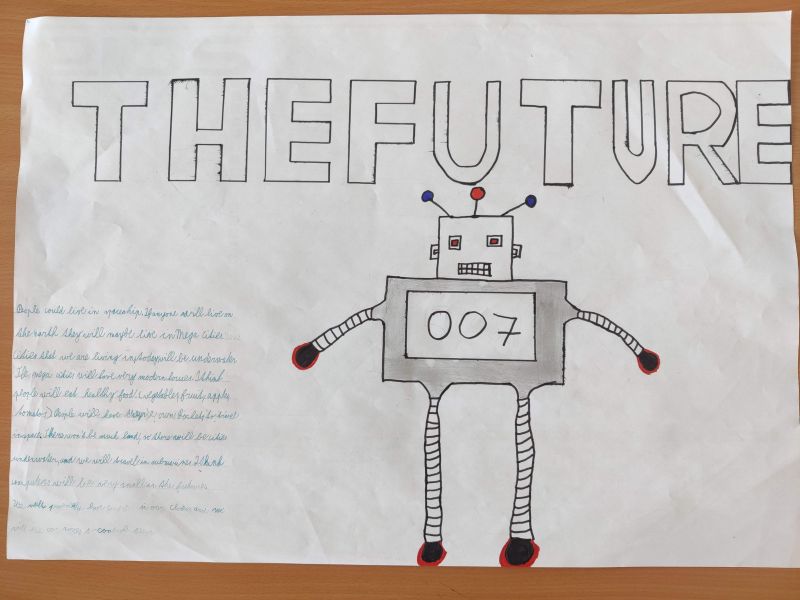 THE FUTURE
007
People could live in spaceship. If anyone will live on
the earth they will maybe live in Mega cities
cities that we are living in today will be underwater
The mega cities will have very modern houses. I think
people will eat healthy food. (vegetables, fruits, apples,
tomatos) People will have their own rockets to travel
in space. There won't be much land, so there will be cities
underwater, and we will travel in submarines. I think
computers will be very small in the future.
We will